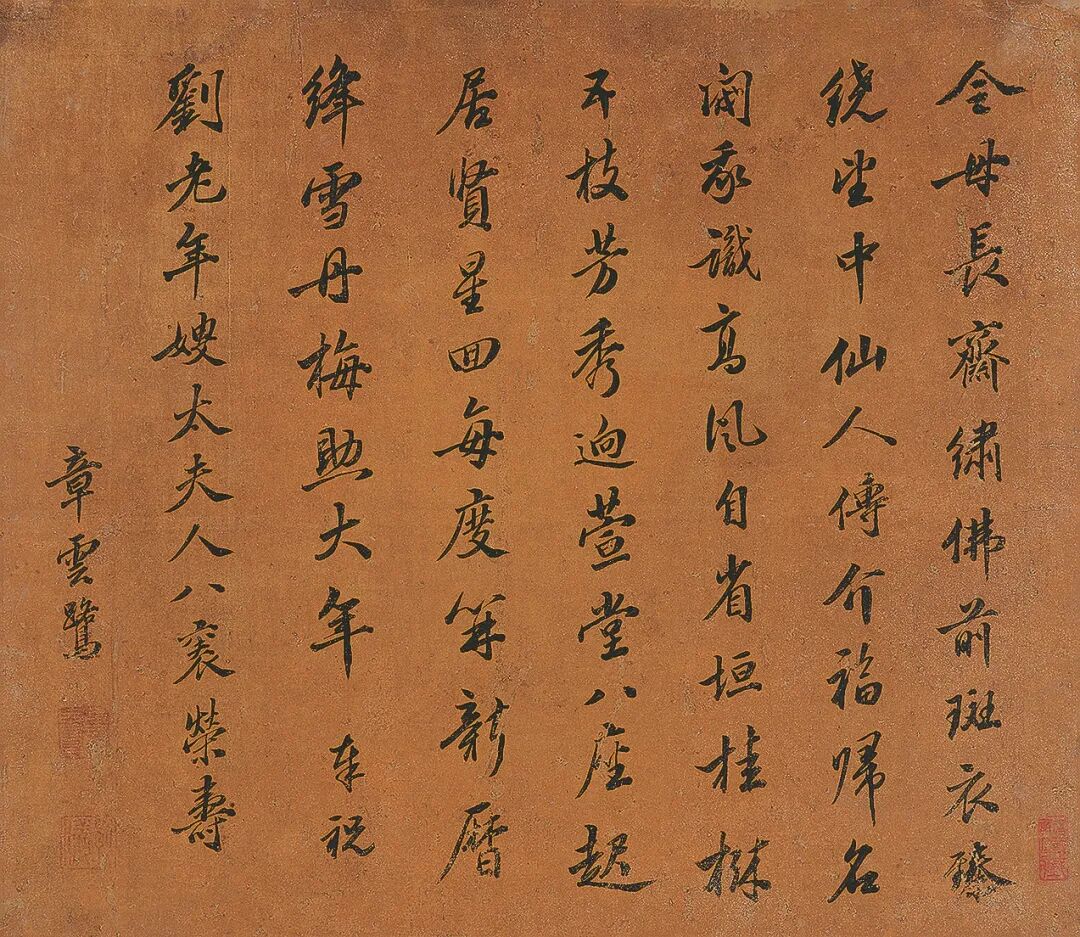 令母長齋繡佛前斑衣
繞坐中仙人傳介福歸名
我識高風自省垣桂
五枝芳秀迥萱堂八座起
居賢星回每度筭新曆
絳雪丹梅助大年 奉祝
劉老年嫂太夫人八袠榮壽
章雲鷺